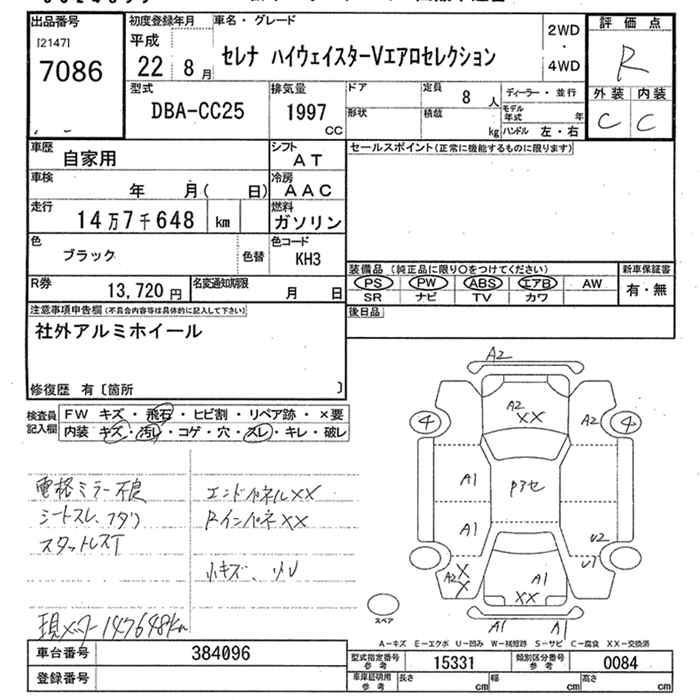 出品番号
[2147]
7086
初度登録年月
平成
22 8月
車名・グレード
セレナ ハイウェイスターVエアロセレクション
2WD
・
4WD
評価点
R
外装 内装
C C
型式
DBA-CC25
排気量
1997
CC
ドア
形状
定員
8人
積載
kg
ディーラー・並行
モデル年式 年
ハンドル 左・右
車歴
自家用
シフト
AT
車検
年 月( 日)
冷房
AAC
走行
14万7千648 km
燃料
ガソリン
色
ブラック
色替
色コード
KH3
R券
13,720円
名変通知期限
月 日
セールスポイント(正常に機能するものに限ります)
装備品 (純正品に限り○をつけてください)
PS PW ABS エアB AW
SR ナビ TV カワ
新車保証書
有・無
後日品
注意事項申告欄(不具合内容等は具体的に記入して下さい)
社外アルミホイール
修復歴 有〔箇所 〕
検査員記入欄
FW キズ・飛石・ヒビ割・リペア跡・×要
内装 キズ・汚レ・コゲ・穴・スレ・キレ・破レ
電格ミラー不良
シートスレ、フタワ
スタットレスT
現メーター147648km
エンドパネルXX
RインパネXX
小キズ、リU
A2
4
4
A2
XX
A2
A1
A1
Pアセ
U2
U1
A2
X
X
A1
XX
A1
A1
スペア
A-キズ E-エクボ U-凹み W-補修跡 S-サビ C-腐食 XX-交換済
車台番号
384096
登録番号
型式指定番号
参考
15331
類別区分番号
参考
0084
車庫証明用
参考
長さ cm
幅 cm
高さ cm